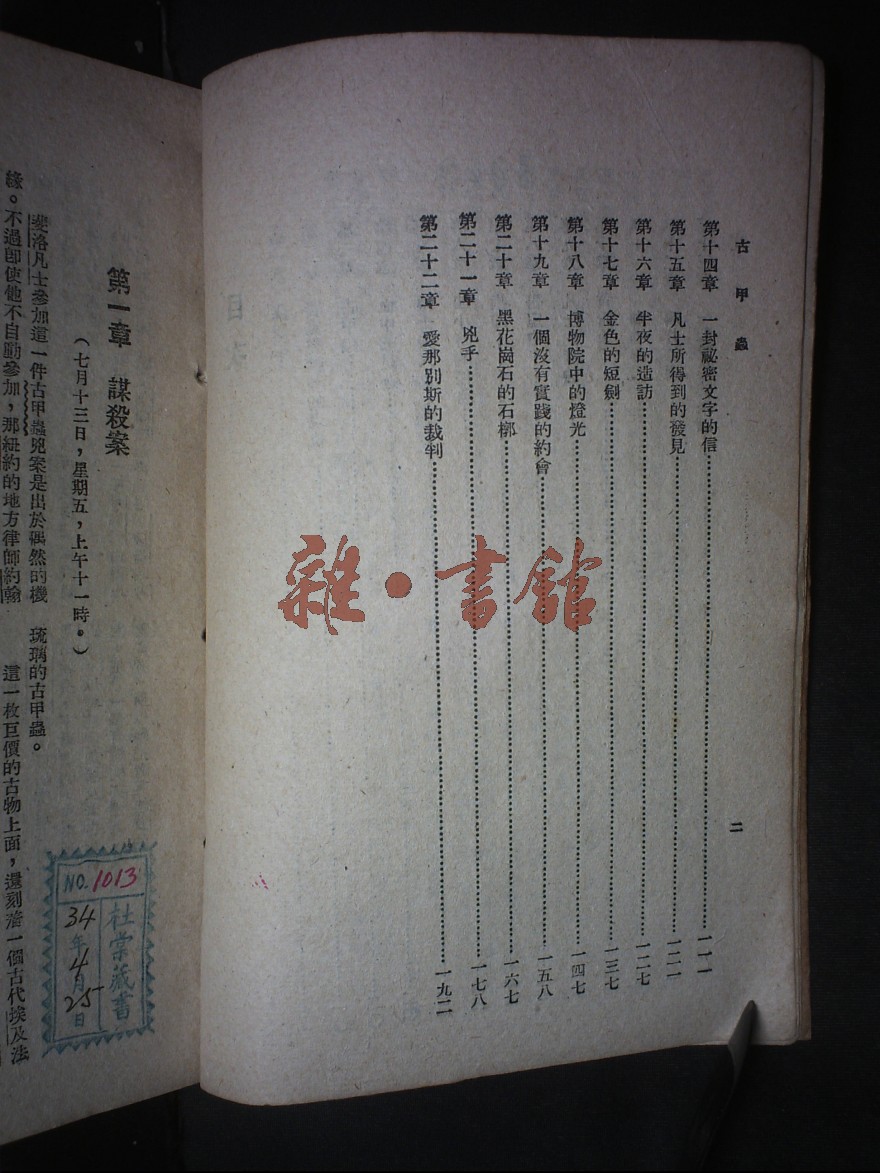 古甲蟲
第十四章 一封祕密文字的信 一一一
第十五章 凡士所得到的發見 一二一
第十六章 半夜的造訪 一二七
第十七章 金色的短劍 一三七
第十八章 博物院中的燈光 一四七
第十九章 一個沒有實踐的約會 一五八
第二十章 黑花崗石的石槨 一六七
第二十一章 兇手 一七八
第二十二章 愛那別斯的裁判 一九二
二
雜·書館
第一章 謀殺案
(七月十三日,星期五,上午十一時。)
斐洛凡士參加這一件古甲蟲兇案是出於偶然的機
緣。不過即使他不自動參加,那紐約的地方律師約翰
琉璃的古甲蟲。
這一枚巨價的古物上面,還刻着一個古代埃及法
NO. 1013
杜棠藏書
34年4月25日